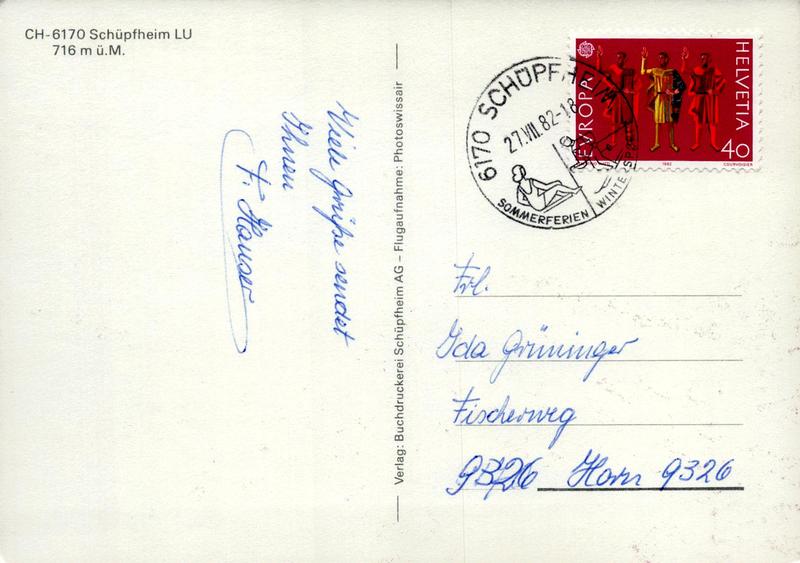 CH-6170 Schüpfheim LU
716 m ü.M.
Viele Grüße sendet
Ihnen
F. Hauser
Verlag: Buchdruckerei Schüpfheim AG – Flugaufnahme: Photoswissair
6170 SCHÜPFHEIM
27.VII.82-18
SOMMERFERIEN
WINTERSP
EUROPA
HELVETIA
40
1982
COURVOISIER
Frl.
Ida Grüninger
Fischerweg
9326 Horn 9326